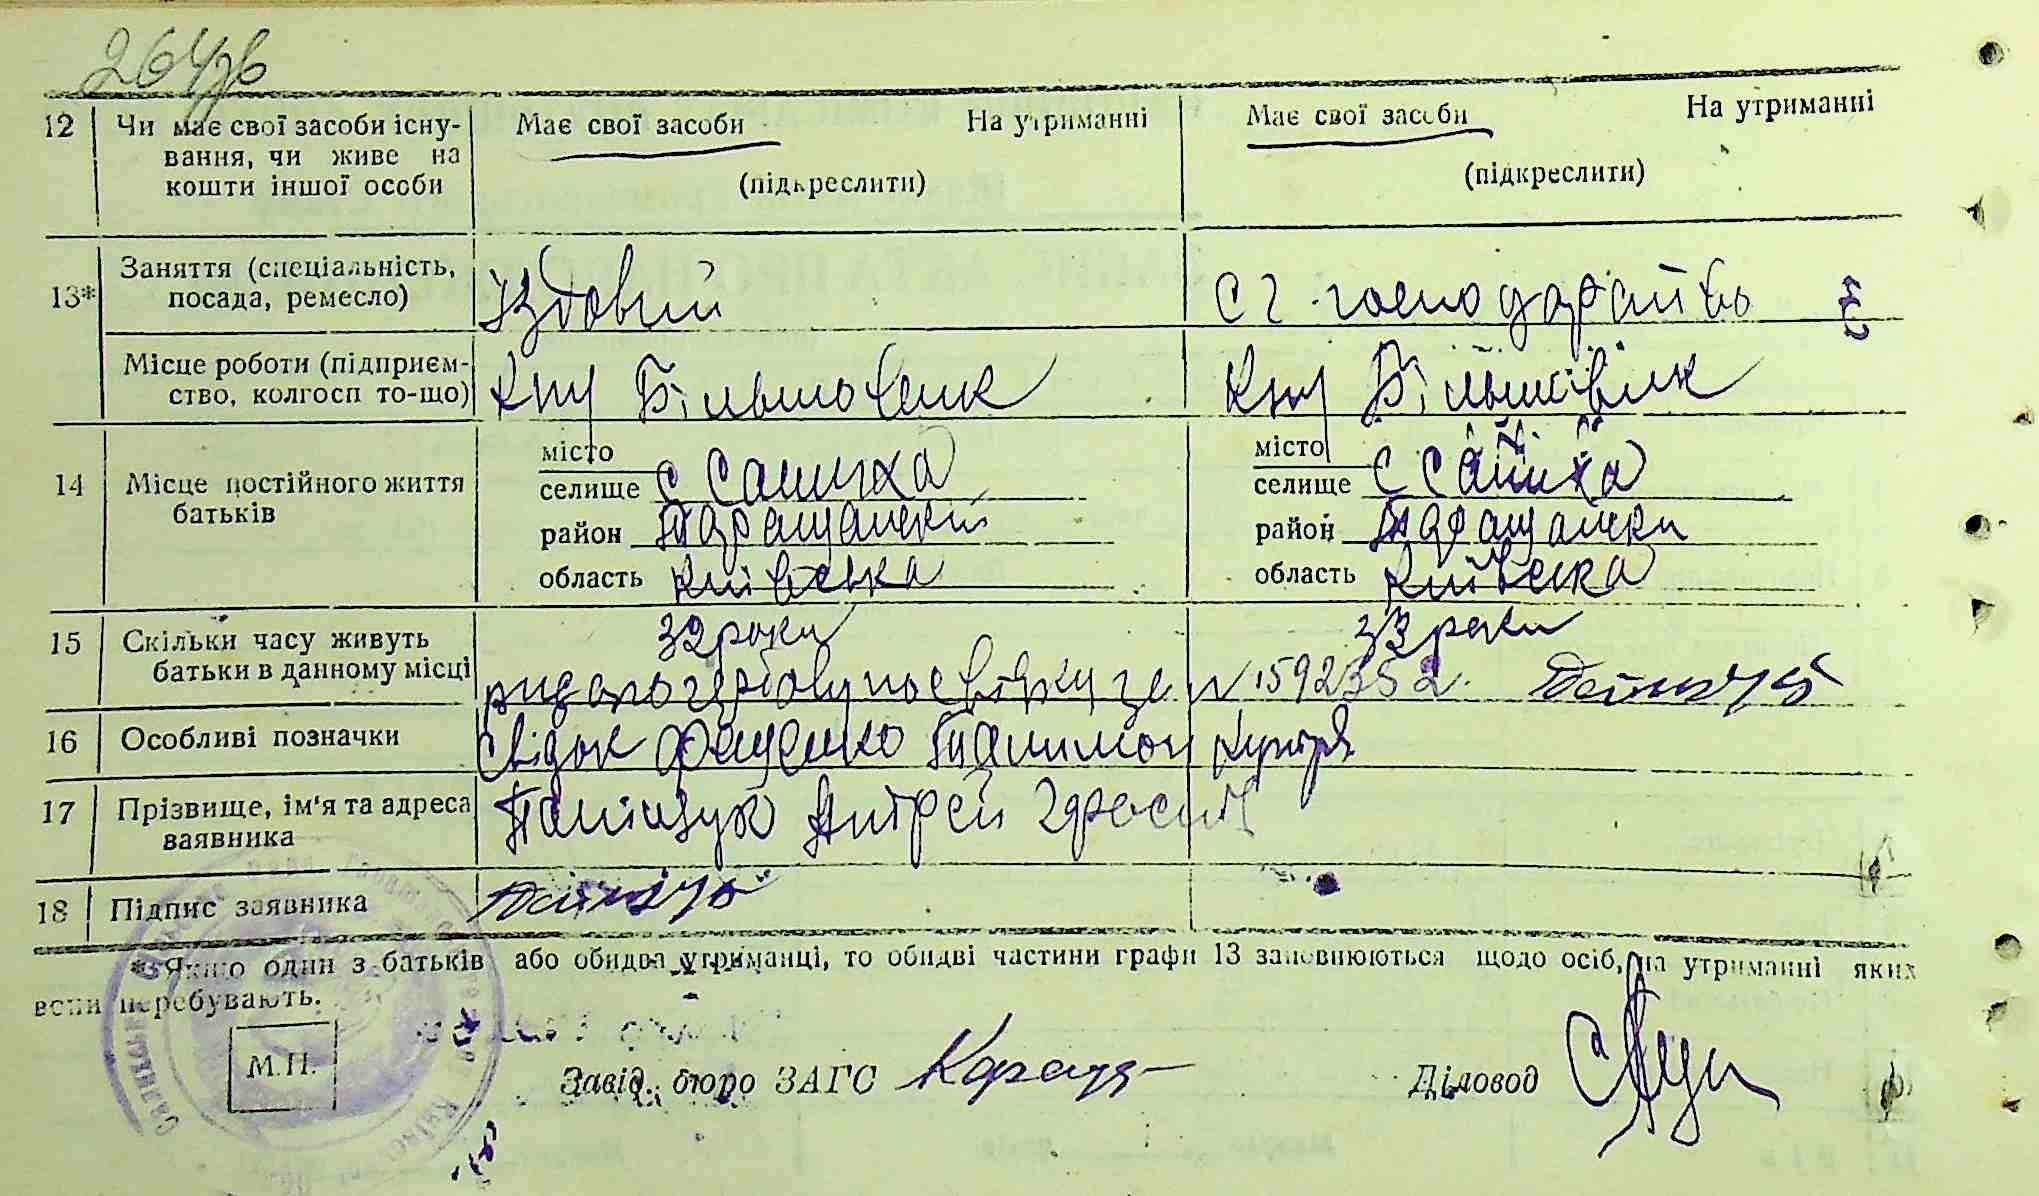 264зв
12 Чи має свої засоби існу- Має свої засоби На утриманні Має свої засоби На утриманні
вання, чи живе на
кошти іншої особи (підкреслити) (підкреслити)
13* Заняття (спеціальність,
посада, ремесло) Їздовий С г господарство
Місце роботи (підприєм-
ство, колгосп то-що) Більшовик Більшовик
14 Місце постійного життя
батьків
місто місто
селище с Саниха селище с Саниха
район Таращанский район Таращански
область Київська область Київська
15 Скільки часу живуть 32 роки 33 роки
батьки в данному місці
видано гербову посвідку за N 1592352
16 Особливі позначки свідок
17 Прізвище, ім'я та адреса
заявника Поліщук Андрей
18 Підпис заявника
* Якщо один з батьків або обидва утриманці, то обидві частини графи 13 заповнюються щодо осіб, на утриманні яких
вони перебувають.
М.П.
Завід. бюро ЗАГС Діловод